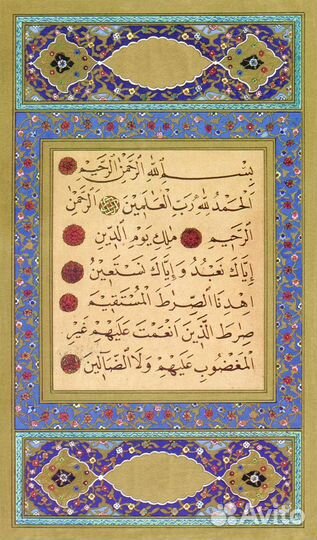 بِسْمِ اللهِ الرَّحْمٰنِ الرَّحِيمِ
اَلْحَمْدُ لِلّٰهِ رَبِّ الْعَالَمِينَ اَلرَّحْمٰنِ
الرَّحِيمِ مٰلِكِ يَوْمِ الدِّينِ
اِيَّاكَ نَعْبُدُ وَ اِيَّاكَ نَسْتَعِينُ
اِهْدِنَا الصِّرَاطَ الْمُسْتَقِيمَ
صِرَاطَ الَّذِينَ اَنْعَمْتَ عَلَيْهِمْ غَيْرِ
الْمَغْضُوبِ عَلَيْهِمْ وَلَا الضَّالِّينَ
Avito